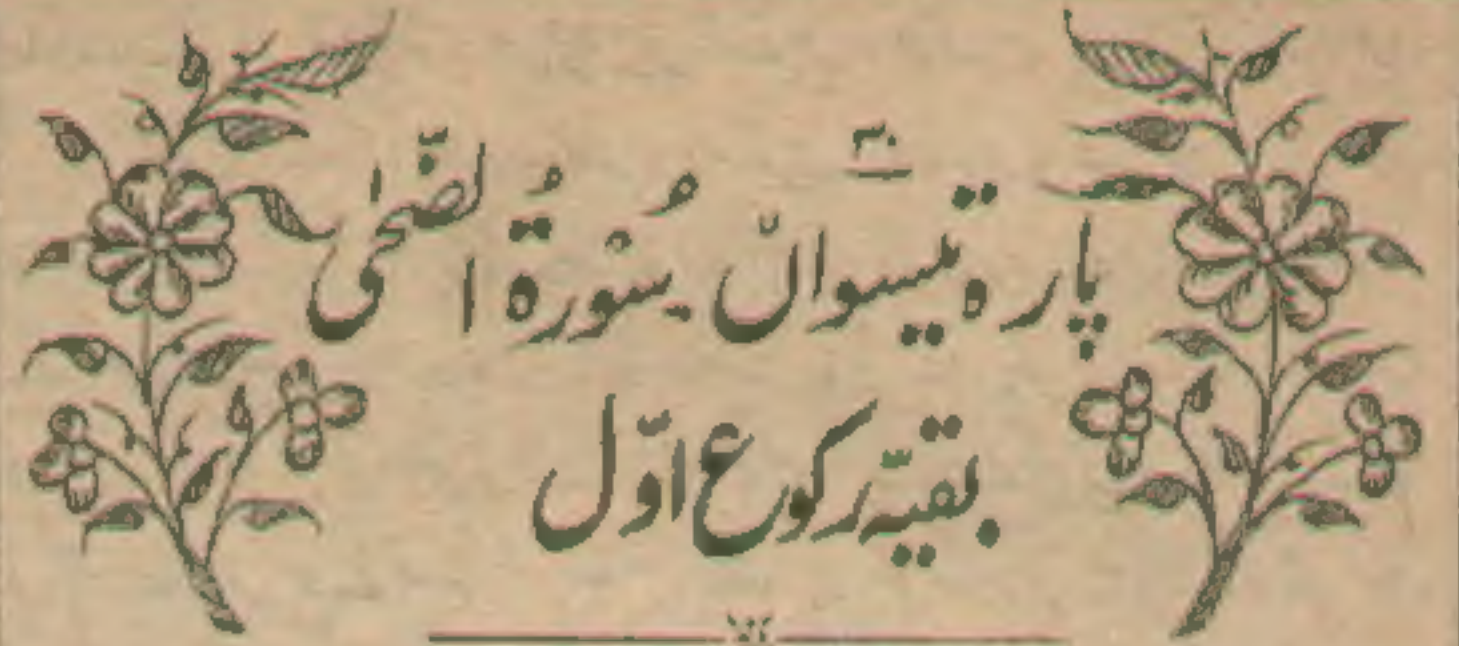 ۳۰
پارہ تیسواں سُوْرَۃُ الضّحٰی
بقیّہ رکوع اوّل